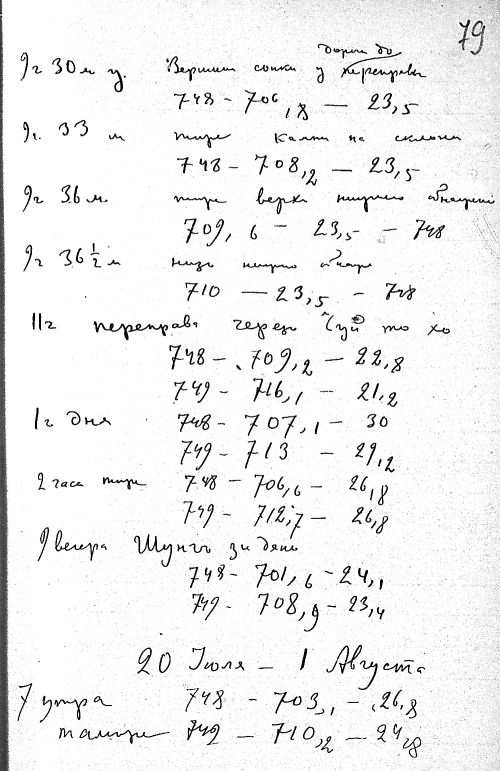 79
дороги до
9г 30м у. Вершина сопки у переправы
748 - 706,8 — 23,5
9г. 33 м тоже камни на склоне
748 - 708,2 — 23,5
9г 36 м. тоже верх нижнего
709,6 — 23,5 — 748
9г 36 1/2 м низ нижнего
710 — 23,5 — 748
11г переправа через Чуй то хо
748 — 709,2 — 22,8
749 — 716,1 — 21,2
1г дня 748 — 707,1 — 30
749 — 713 — 29,2
2 часа тоже 748 — 706,6 — 26,8
749 — 712,7 — 26,8
9 вечера
748 - 701,6 — 24,1
749 - 708,9 — 23,4
20 Июля — 1 Августа
7 утра 748 — 703,1 — 26,8
там же 749 — 710,2 — 24,8